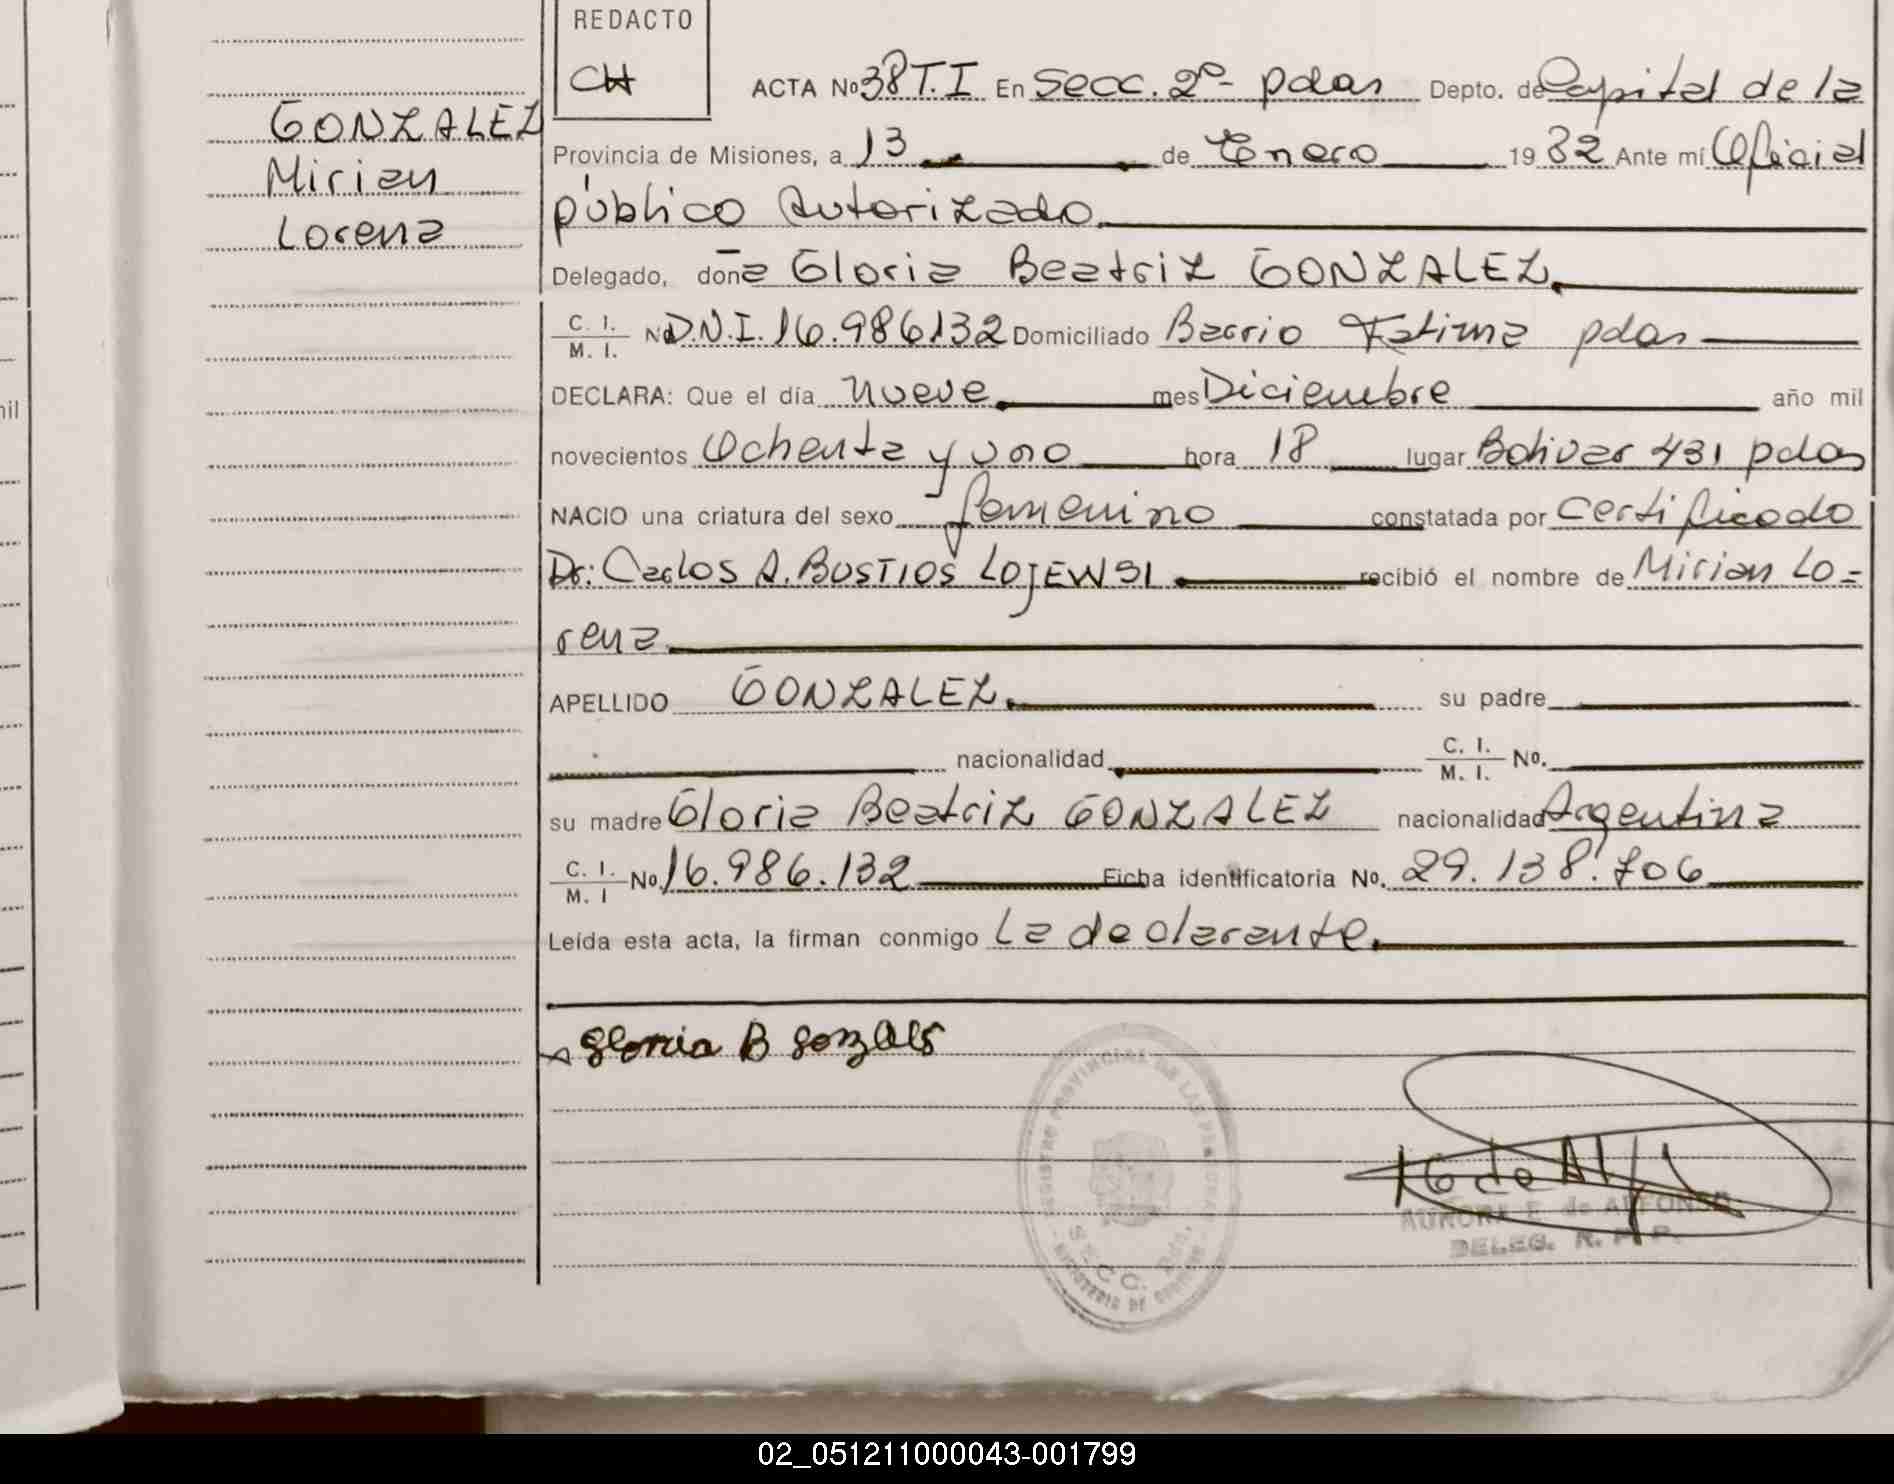 REDACTO
CH
GONZALEZ
Mirian
Lorena
ACTA No 38 T.I En Secc. 2º - pdas Depto. de Capital de la
Provincia de Misiones, a 13 de Enero 1982 Ante mí Oficial
público Autorizado
Delegado, doña Gloria Beatriz GONZALEZ
C. I. / M. I. No D.N.I. 16.986132 Domiciliado Barrio Fatima pdas
DECLARA: Que el día nueve mes Diciembre año mil
novecientos Ochenta y uno hora 18 lugar Bolivar 431 pdas
NACIO una criatura del sexo femenino constatada por Certificado
Dr: Carlos A. BUSTIOS LOJEWSI recibió el nombre de Mirian Lo-
rena
APELLIDO GONZALEZ su padre
nacionalidad C. I. / M. I. No.
su madre Gloria Beatriz GONZALEZ nacionalidad Argentina
C. I. / M. I No 16.986.132 Ficha identificatoria No. 29.138.706
Leída esta acta, la firman conmigo La declarante
Gloria B Gonzalez
REGISTRO PROVINCIAL DE LAS PERSONAS
SECC. 2da.
MINISTERIO DE GOBIERNO
AURORA F. de ALFONSO
DELEG. R. P. P.
02_051211000043-001799